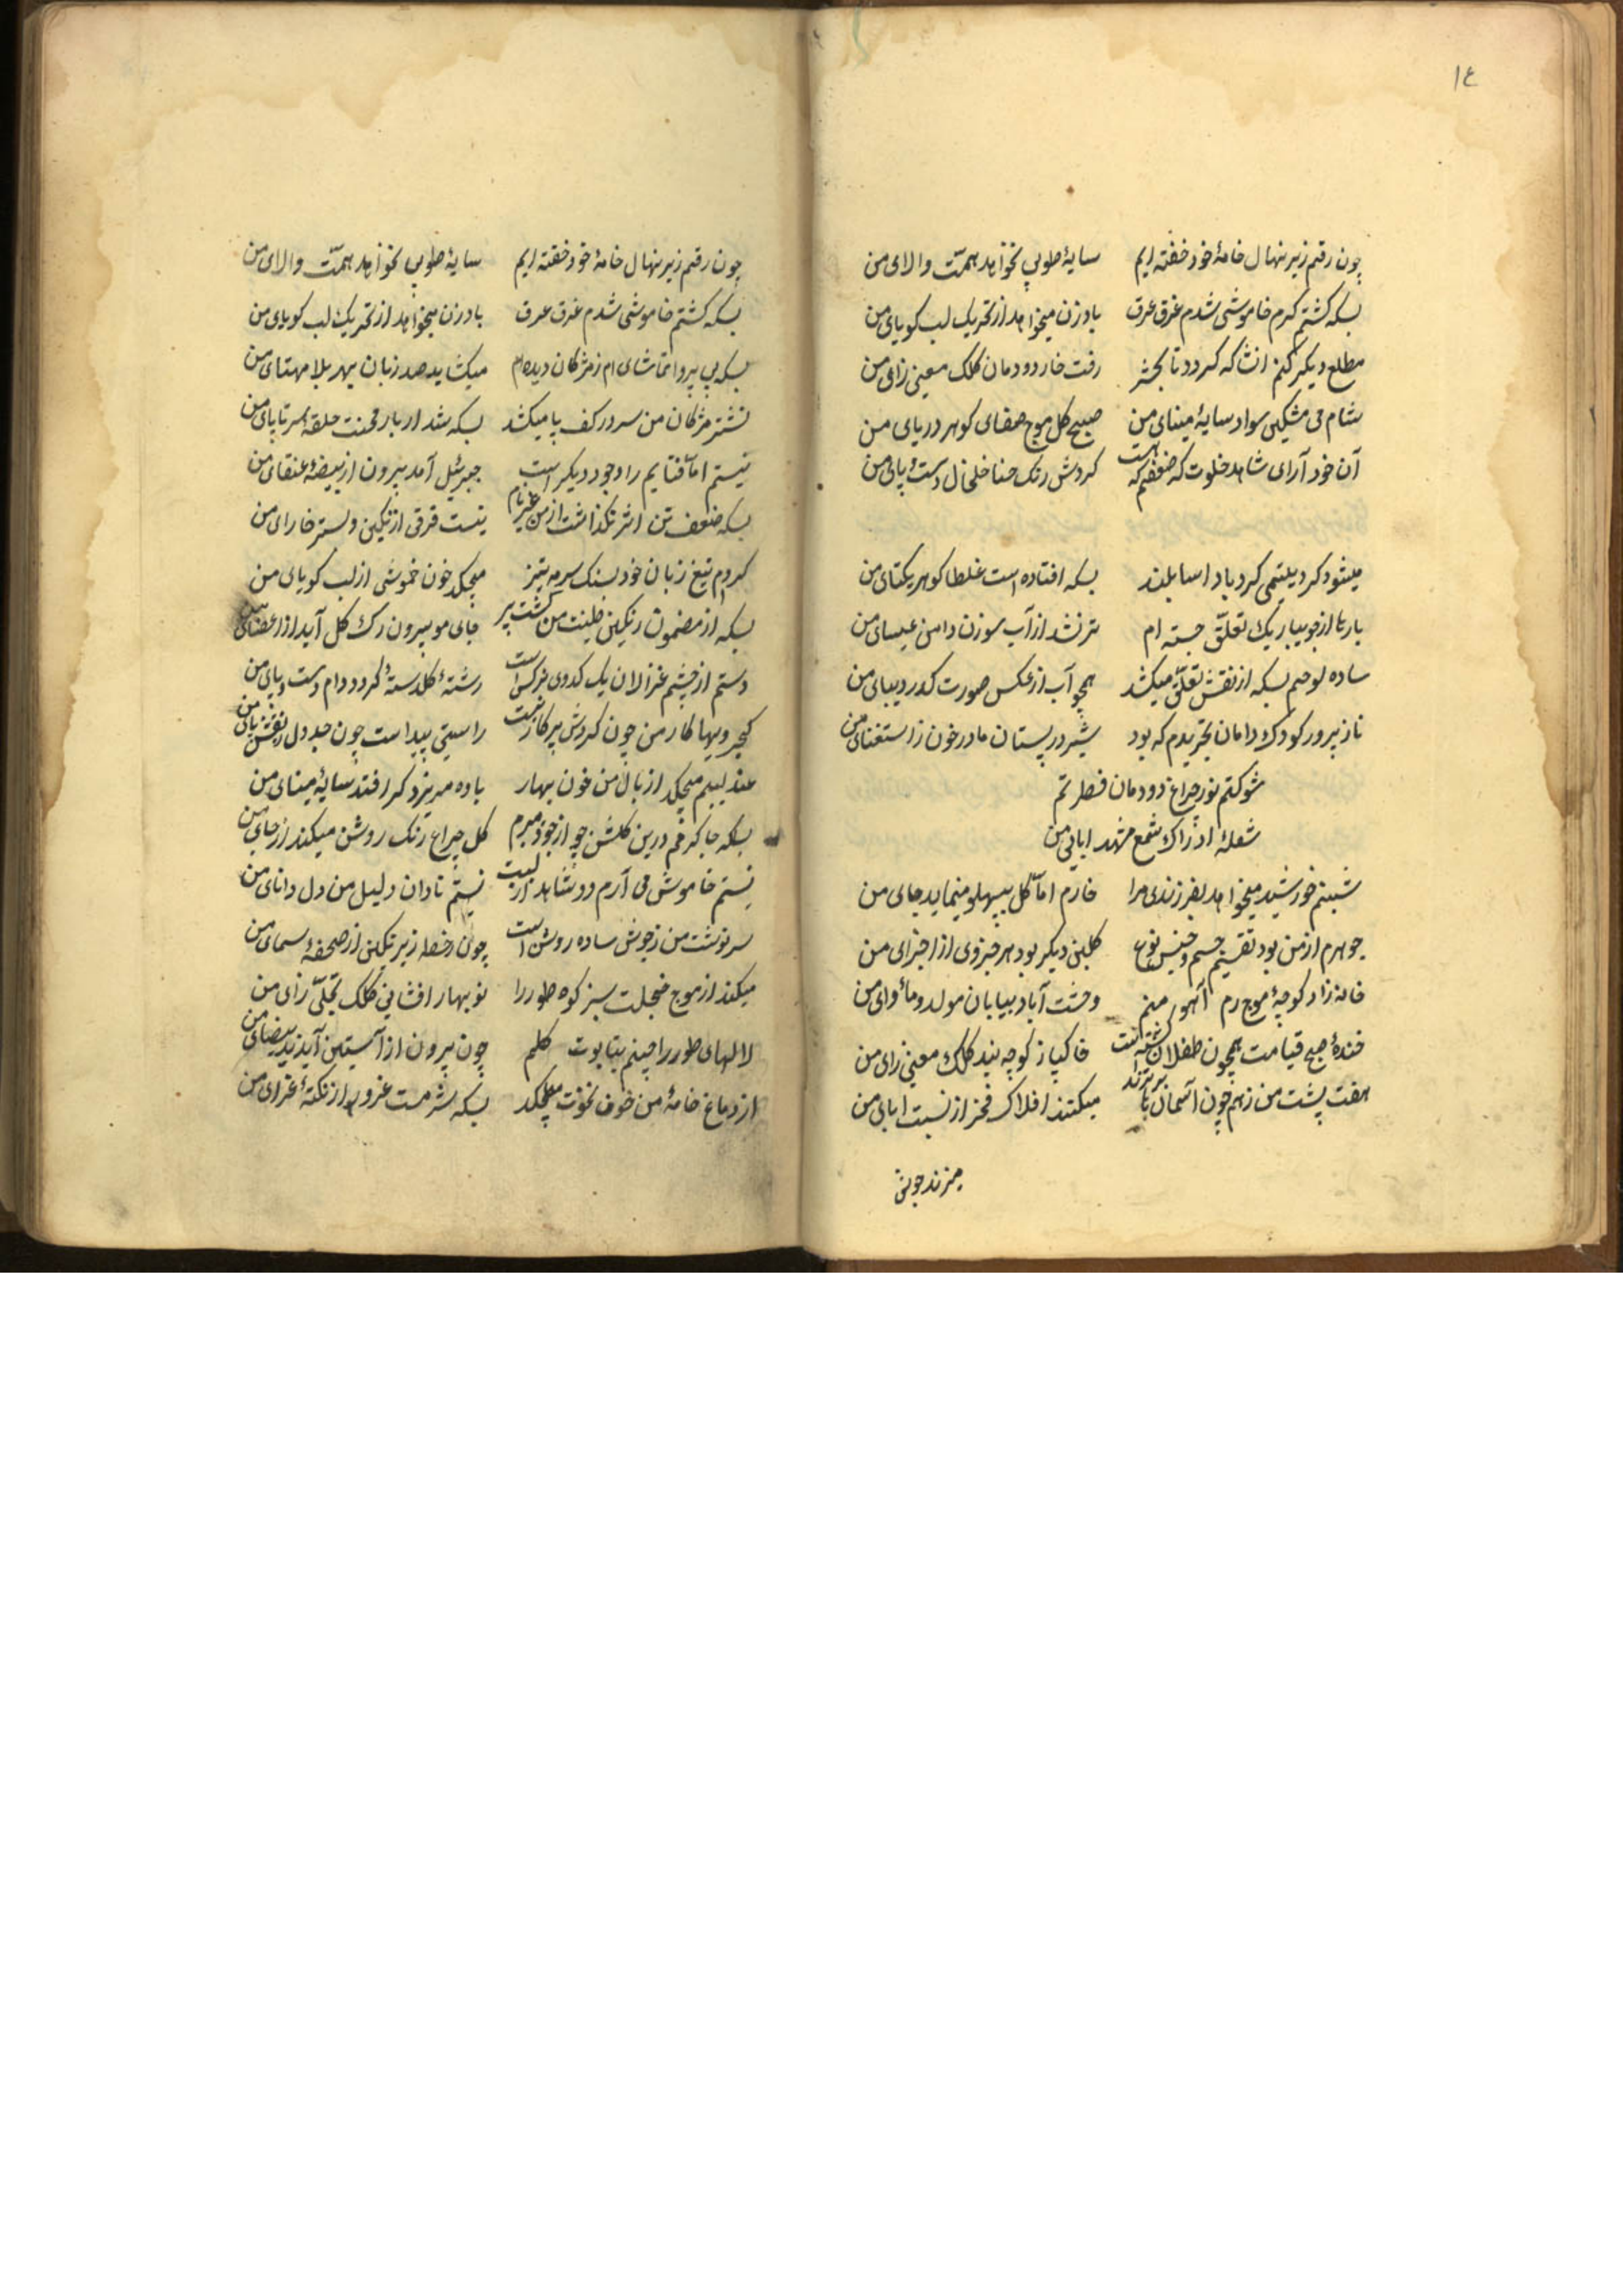 ١٤
چون رقم زیر نهال خامهٔ خود خفته ایم سایهٔ طوبی نخواهد همّت والای من
بسکه کشتم کرم خاموشی شدم غرق عرق بادزن میخواهد از تحریک لب کویای من
مطلع دیکر کنم انشا که کردد تا بحشر رفت خار دودمان کلک معنی زای من
شام می مشکین سواد سایهٔ مینای من صبح کل موج صفای کوهر دریای من
آن خود آرای شاهد خلوت که ضعفم که هست کردش رنک حنا خلخال دست و پای من
میشود کرد یتیمی کردباد اسا بلند بسکه افتاده است غلطا کوهر یکتای من
بارها از جویبار یک تعلّق جسته ام تر نشد از آب سوزن دامن عیسای من
ساده لوحم بسکه از نقش تعلّق میکشد همچو آب از عکس صورت کدر دیبای من
ناز پرور کودک دامان تجریدم که بود شیر در پستان مادر خون ز استغنای من
شوکتم نور چراغ دودمان فطرتم
شعلهٔ ادراک شمع مشهد ابای من
شبنم خورشید میخواهد بفرزندی مرا خارم امّا کل بپهلو مینماید جای من
جوهرم از من بود تقسیم جسم و جنس نوع کلبن دیکر بود هر جزوی از اجزای من
خانه زاد کوچهٔ موج رم آهو منم وحشت آباد بیابان مولد و مأوای من
خندهٔ صبح قیامت همچون طفلان خاکباز کوچه بند کلک معنی زای من
هفت پشت من زهم چون آسمان میکنند افلاک فخر از نسبت ابای من
میزند جوش
چون رقم زیر نهال خامهٔ خود خفته ایم سایهٔ طوبی نخواهد همّت والای من
بسکه کشتم خاموشی شدم غرق عرق بادزن میخواهد از تحریک لب کویای من
بسکه بی پروا تماشای ام زمژکان دیده ام میکشاید صد زبان بهر بلا مهتای من
نشتر مژکان من سر در کف پا میکشد بسکه شد از بار محنت حلقه سر تا پای من
نیستم امّا فنایم را وجود دیکر است جبرئیل آمد بیرون از بیضهٔ عنقای من
بسکه ضعف تن اثر نکذاشت از من غیر نام نیست فرقی از نکین و بستر خارای من
کردم تیغ زبان خود بسنک سرمه تیز میچکد خون خموشی از لب کویای من
بسکه از مضمون رنکین طینت من کشت پر جای مو بیرون رک کل آید از اعضای من
دستم از چشم غزالان یک کدوی نرکس است رشتهٔ کلدسته کردد دام دست و پای من
کجرویها کار من چون کردش پرکار نیست راستی پیداست چون جدول ز نقش پای من
عندلیبم میچکد از بال من خون بهار باده میریزد کر افتد سایهٔ مینای من
بسکه جا کرم درین کلشن چو از خود میرم کل چراغ رنک روشن میکند از جای من
نیستم خاموش می آرم دو شاهد از لبت نیستم نادان دلیل من دل دانای من
سرنوشت من ز جوش ساده روشن است چون خط زیر نکین از صحفهٔ سیمای من
میکند از موج خجلت سبز کوه طور را نوبهار افشانی کلک تجلّی زای من
لالهای طور را چینم بتابوت کلیم چون بیرون از آستین آید ید بیضای من
از دماغ خامهٔ من خون نخوت میچکد بسکه سرمست غرور از نکتهٔ غرای من